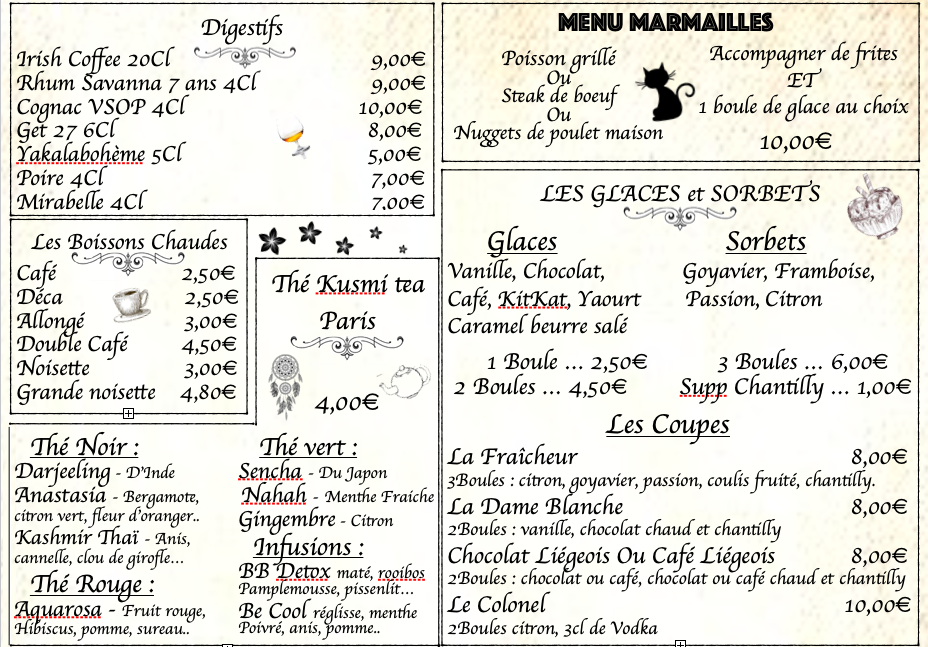 Digestifs
Irish Coffee 20Cl 9,00€
Rhum Savanna 7 ans 4Cl 9,00€
Cognac VSOP 4Cl 10,00€
Get 27 6Cl 8,00€
Yakalabohème 5Cl 5,00€
Poire 4Cl 7,00€
Mirabelle 4Cl 7.00€
Les Boissons Chaudes
Café 2,50€
Déca 2,50€
Allongé 3,00€
Double Café 4,50€
Noisette 3,00€
Grande noisette 4,80€
Thé Kusmi tea
Paris
4,00€
Thé Noir :
Darjeeling - D'Inde
Anastasia - Bergamote,
citron vert, fleur d'oranger..
Kashmir Thaï - Anis,
cannelle, clou de girofle...
Thé Rouge :
Aquarosa - Fruit rouge,
Hibiscus, pomme, sureau..
Thé vert :
Sencha - Du Japon
Nahah - Menthe Fraiche
Gingembre - Citron
Infusions :
BB Detox maté, rooibos
Pamplemousse, pissenlit...
Be Cool réglisse, menthe
Poivré, anis, pomme..
MENU MARMAILLES
Poisson grillé
Ou
Steak de boeuf
Ou
Nuggets de poulet maison
Accompagner de frites
ET
1 boule de glace au choix
10,00€
LES GLACES et SORBETS
Glaces
Vanille, Chocolat,
Café, KitKat, Yaourt
Caramel beurre salé
Sorbets
Goyavier, Framboise,
Passion, Citron
1 Boule ... 2,50€ 3 Boules ... 6,00€
2 Boules ... 4,50€ Supp Chantilly ... 1,00€
Les Coupes
La Fraîcheur 8,00€
3Boules : citron, goyavier, passion, coulis fruité, chantilly.
La Dame Blanche 8,00€
2Boules : vanille, chocolat chaud et chantilly
Chocolat Liégeois Ou Café Liégeois 8,00€
2Boules : chocolat ou café, chocolat ou café chaud et chantilly
Le Colonel 10,00€
2Boules citron, 3cl de Vodka